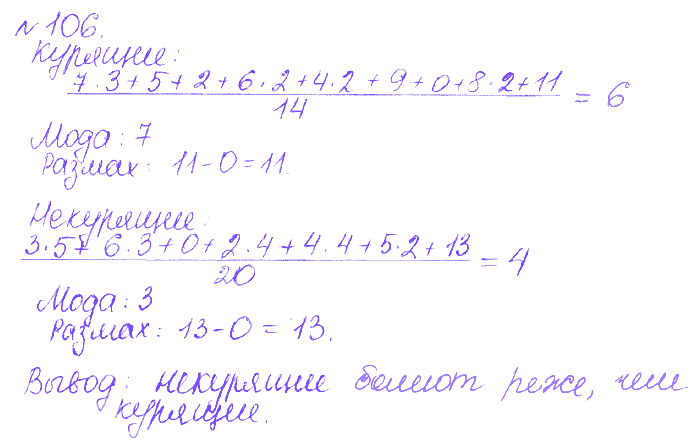 №106.
Курящие:
7·3+5+2+6·2+4·2+9+0+8·2+11
14
= 6
Мода: 7
Размах: 11-0=11.
Некурящие:
3·5+6·3+0+2·4+4·4+5·2+13
20
= 4
Мода: 3
Размах: 13-0=13.
Вывод: некурящие болеют реже, чем
курящие.